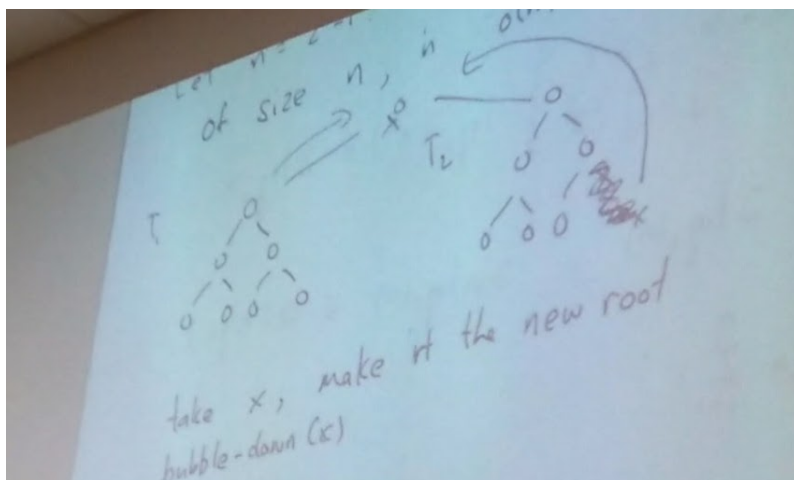 Let n = 2
of size n, in
x
T₂
T
x
take x, make it the new root
bubble-down (x)